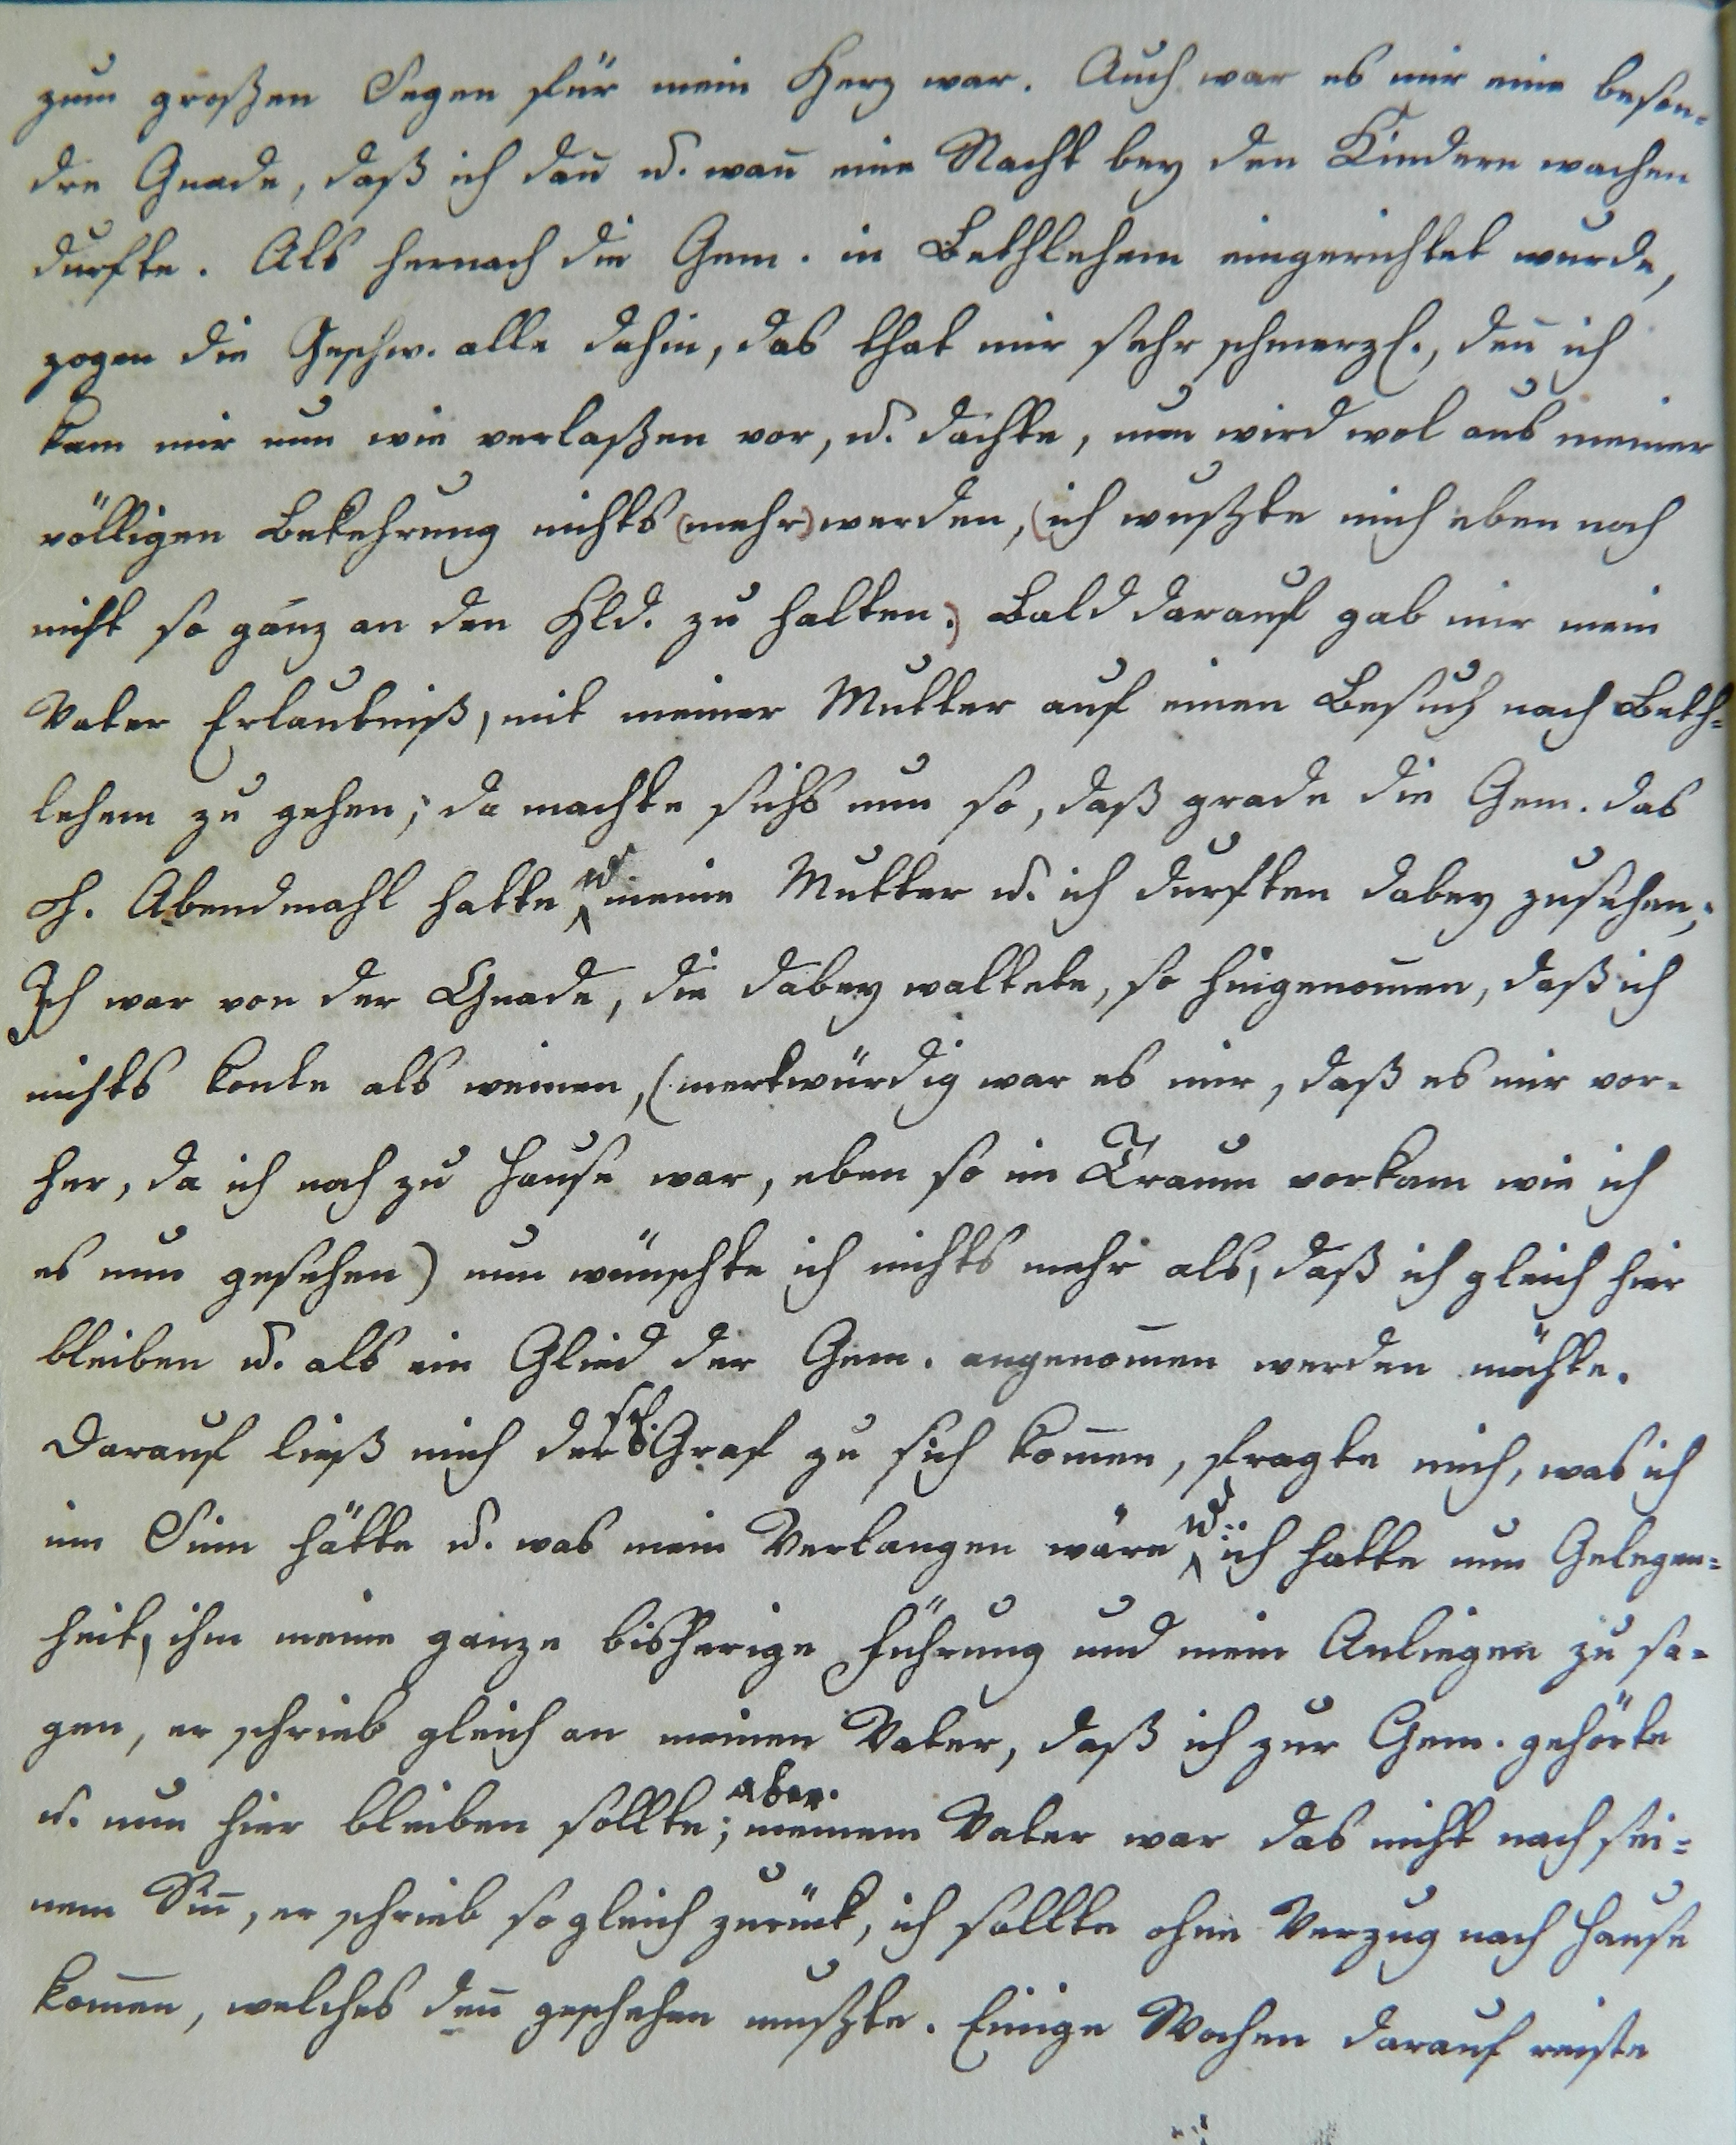 zum großen Segen für mein Herz war. Auch war es mir eine beson-
dre Gnade, daß ich dañ u. wañ eine Nacht bey den Kindern wachen
durfte. Als hernach die Gem. in Bethlehem eingerichtet wurde,
zogen die Geschw. alle dahin, das that mir sehr schmerzl., deñ ich
kam mir nun wie verlaßen vor, u. dachte, nun wird wol aus meiner
völligen Bekehrung nichts (mehr) werden, (ich wußte mich eben noch
nicht so ganz an den Hld. zu halten.) Bald darauf gab mir mein
Vater Erlaubniß, mit meiner Mutter auf einen Besuch nach Beth-
lehem zu gehen; da machte sichs nun so, daß grade die Gem. das
h. Abendmahl hatte u. meine Mutter u. ich durften dabey zusehen;
Ich war von der Gnade, die dabey waltete, so hingenom̄en, daß ich
nichts konte als weinen, (merkwürdig war es mir, daß es mir vor-
her, da ich noch zu Hause war, eben so im Traum vorkam wie ich
es nun gesehen) nun wünschte ich nichts mehr als, daß ich gleich hier
bleiben u. als ein Glied der Gem. angenom̄en werden möchte.
Darauf ließ mich der sel. Graf zu sich kom̄en, fragte mich, was ich
im Sinn hätte u. was mein Verlangen wäre u. ich hatte nun Gelegen-
heit, ihm meine ganze bisherige Führung und mein Anliegen zu sa-
gen, er schrieb gleich an meinen Vater, daß ich zur Gem. gehörte
u. nun hier bleiben sollte; aber meinem Vater war das nicht nach sei-
nem Siñ, er schrieb so gleich zurück, ich sollte ohne Verzug nach Hause
kom̄en, welches deñ geschehen mußte. Einige Wochen darauf reiste